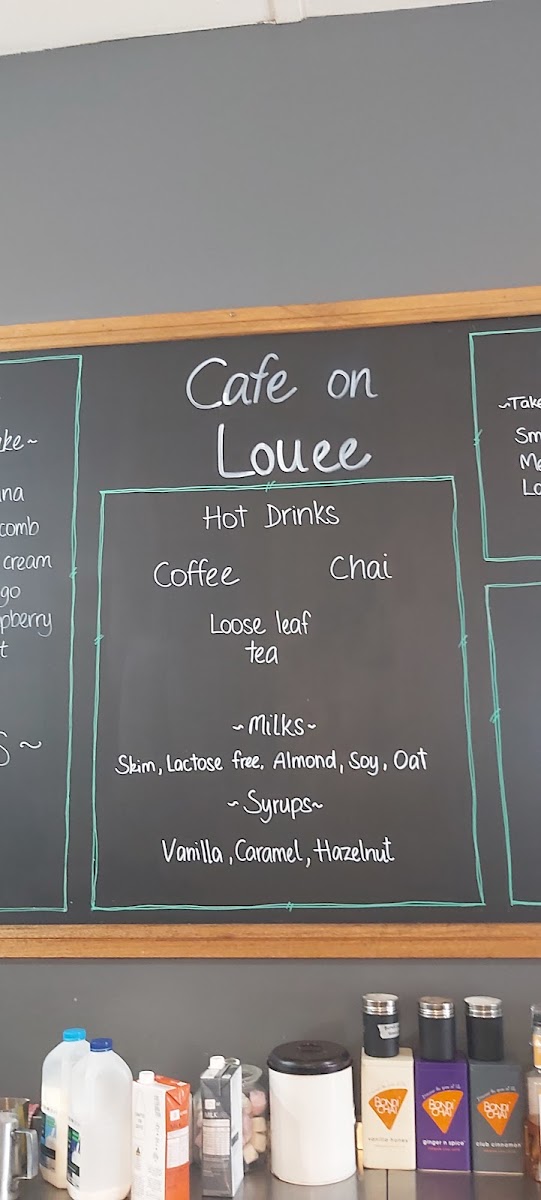 Cafe on
Louee
Hot Drinks
Coffee Chai
Loose leaf
tea
~Milks~
Skim, Lactose free, Almond, Soy, Oat
~Syrups~
Vanilla, Caramel, Hazelnut
cream
~Take
MILK
BONDI
CHAI
vanilla honey
BONDI
CHAI
ginger n spice
BONDI
CHAI
club cinnamon